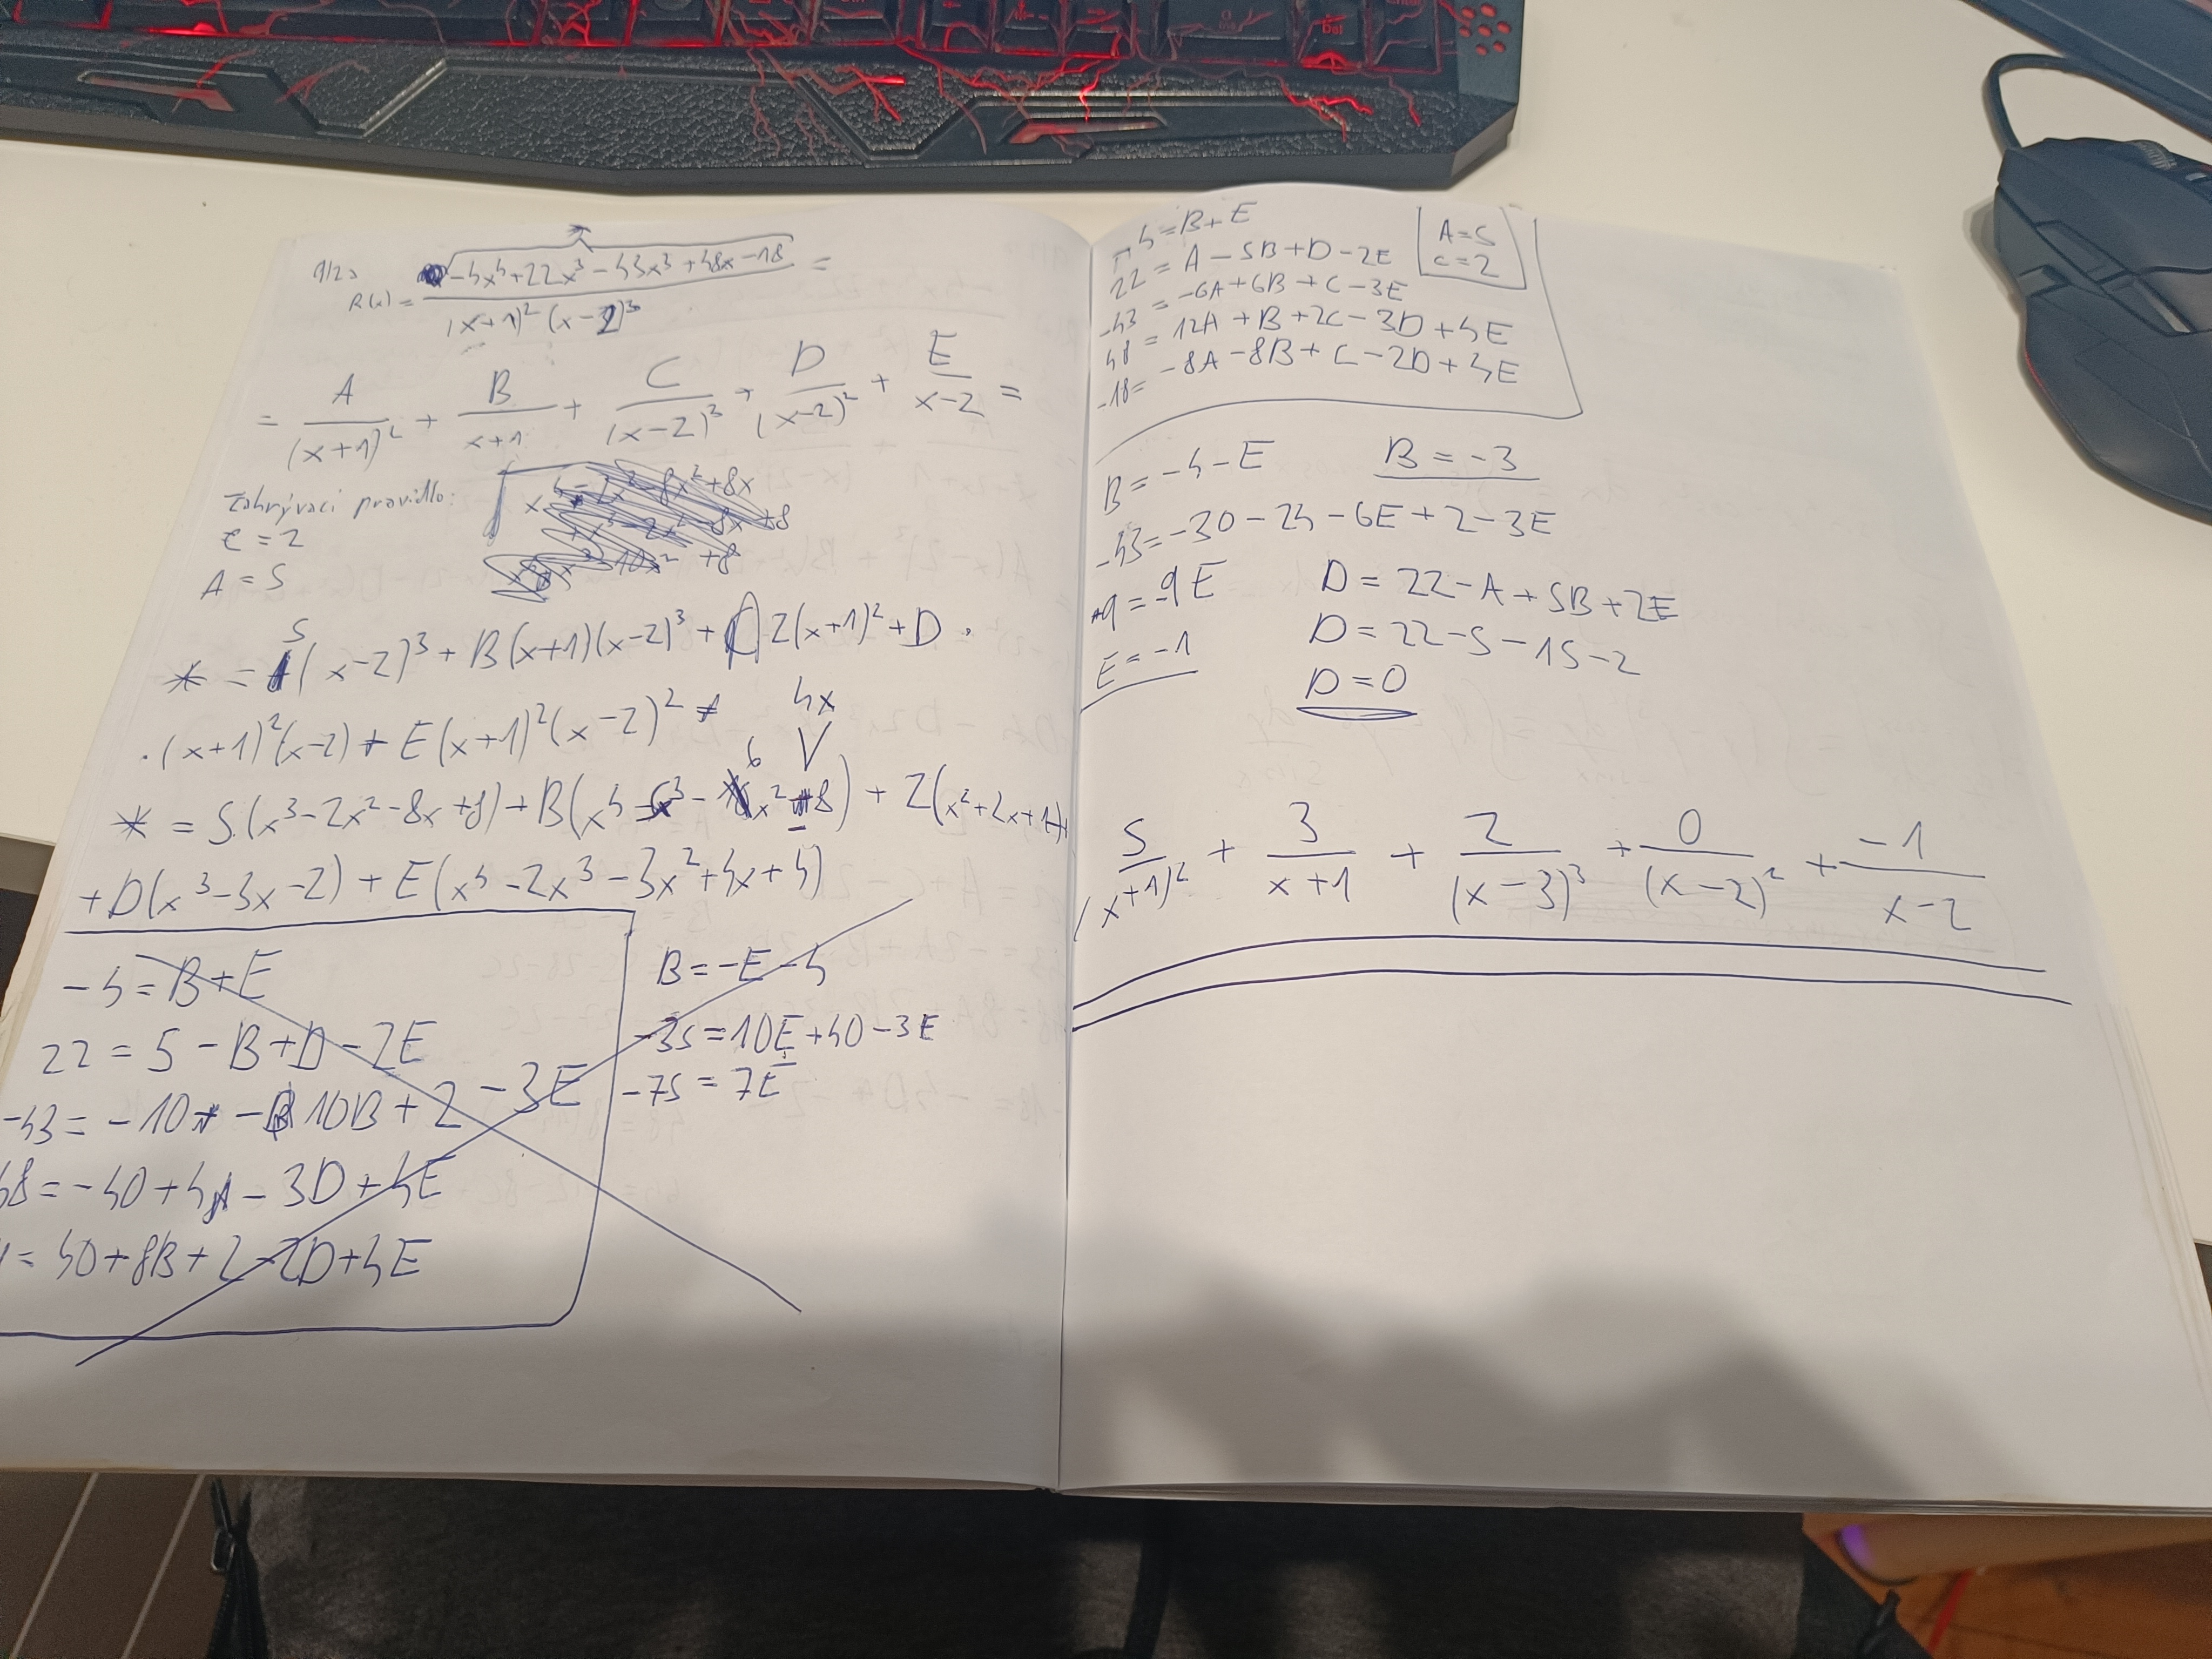 9/2)
R(x) = (-4x⁴+22x³-43x³+48x-18) / ((x+1)²(x-2)³) =
= A/(x+1)² + B/(x+1) + C/(x-2)³ + D/(x-2)² + E/(x-2) =
Zakrývací pravidlo:
C = 2
A = 5
* = 5(x-2)³ + B(x+1)(x-2)³ + 2(x+1)² + D ·
· (x+1)²(x-2) + E(x+1)²(x-2)²
4x
* = 5(x³-2x²-8x+8) + B(x⁴-5x³-6x²-8) + 2(x²+2x+1)+
+D(x³-3x-2) + E(x⁴-2x³-3x²+4x+4)
-4 = B+E
22 = 5-B+D-2E
-43 = -10-10B+2-3E
48 = -40+4-3D+4E
= 40+8B+2-2D+4E
B = -E-4
-35 = 10E+40-3E
-75 = 7E
-4 = B+E
22 = A-5B+D-2E
-43 = -6A+6B+C-3E
48 = 12A+B+2C-3D+4E
-18 = -8A-8B+C-2D+4E
A=5
C=2
B = -4-E
B = -3
-43 = -30-24-6E+2-3E
9 = -9E
E = -1
D = 22-A+5B+2E
D = 22-5-15-2
D = 0
5/(x+1)² + 3/(x+1) + 2/(x-3)³ + 0/(x-2)² + -1/(x-2)